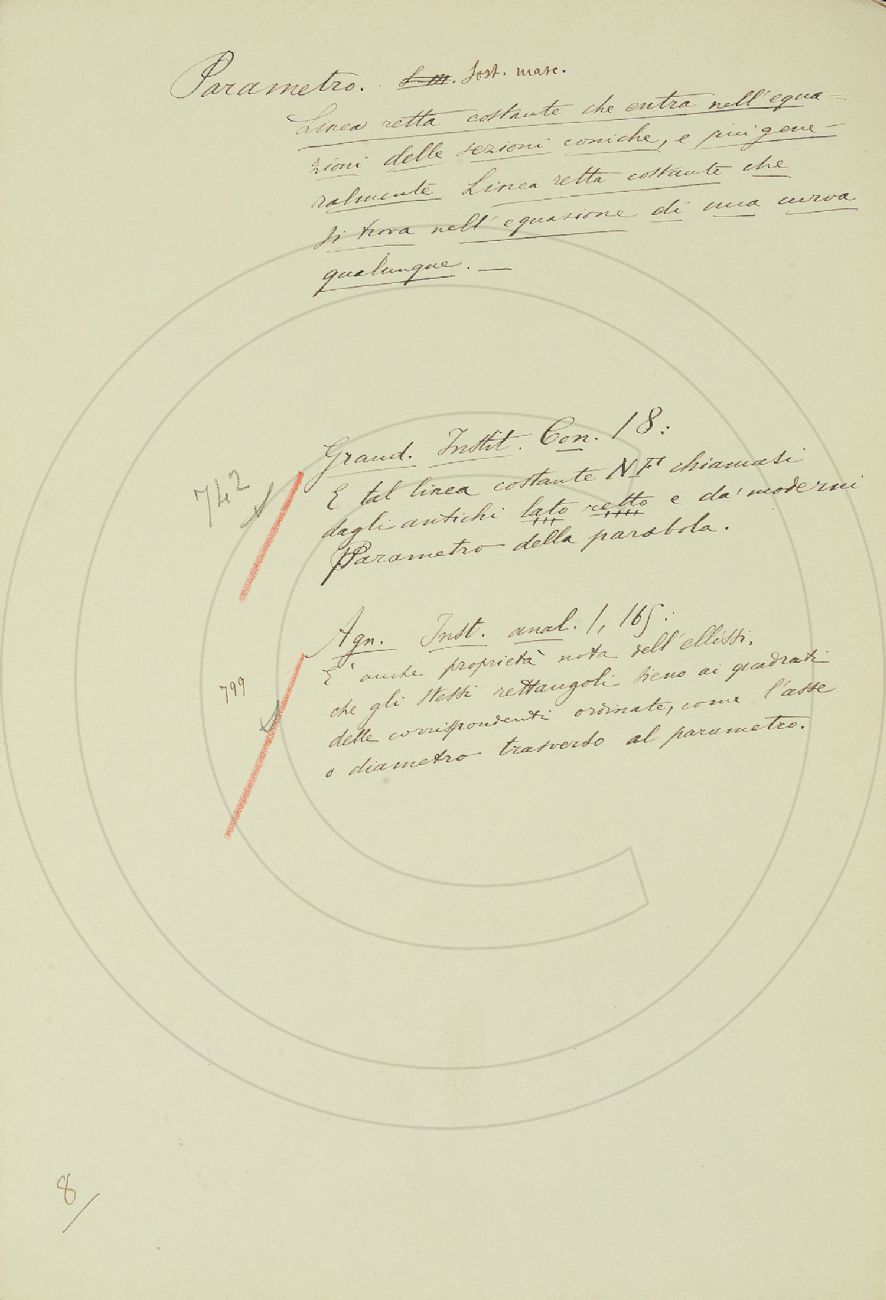 Parametro. S. m. Sost. masc.
Linea retta costante che entra nell'equa-
zioni delle sezioni coniche, e più gene-
ralmente Linea retta costante che
si trova nell'equazione di una curva
qualunque. —
Grand. Instit. Con. 18:
742
E tal linea costante NF chiamasi
dagli antichi lato retto e da' moderni
Parametro della parabola.
Agn. Inst. anal. 1, 165:
799
E' anche proprietà nota dell'ellissi,
che gli stessi rettangoli sieno ai quadrati
delle corrispondenti ordinate, come l'asse
o diametro trasverso al parametro.
8/